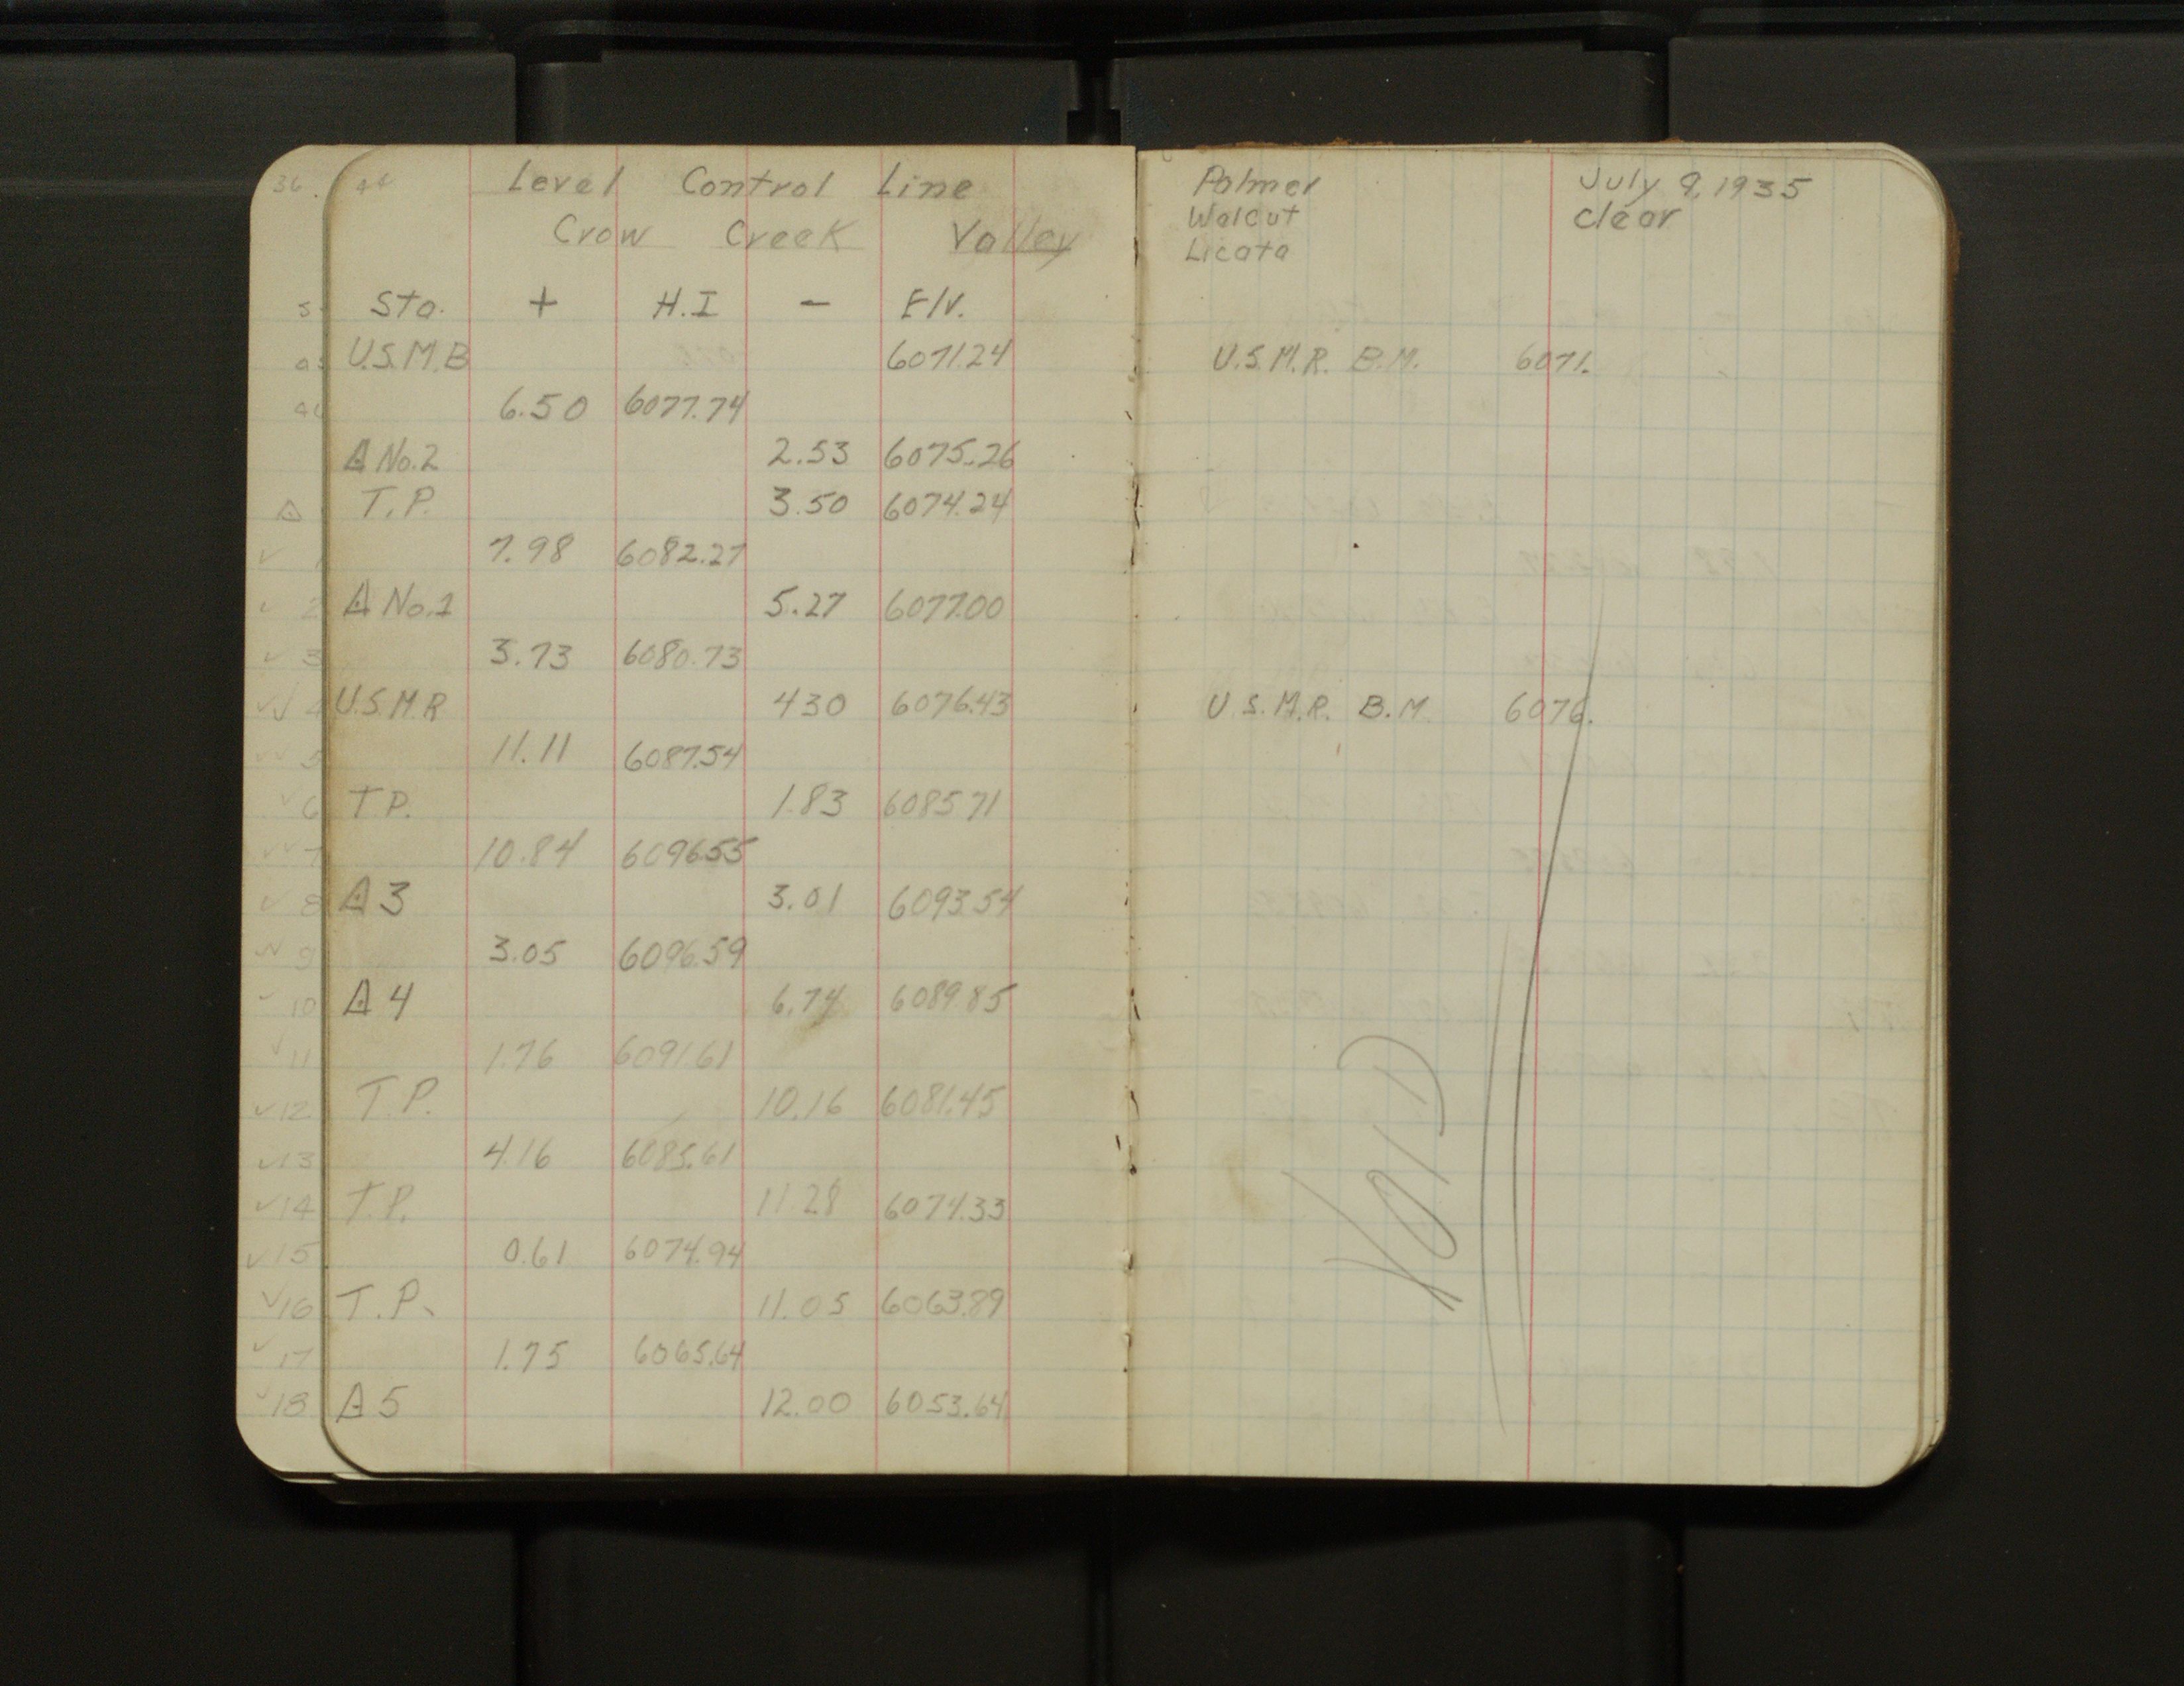 Level Control Line
Crow Creek Valley
Sta. + H.I - Elv.
U.S.M.B 6071.24
6.50 6077.74
△ No.2 2.53 6075.26
T.P. 3.50 6074.24
7.98 6082.27
△ No.1 5.27 6077.00
3.73 6080.73
U.S.M.R 430 6076.43
11.11 6087.54
T.P. 1.83 6085.71
10.84 6096.55
△ 3 3.01 6093.54
3.05 6096.59
△ 4 6.74 6089.85
1.76 6091.61
T.P. 10.16 6081.45
4.16 6085.61
T.P. 11.28 6074.33
0.61 6074.94
T.P. 11.05 6063.89
1.75 6065.64
△ 5 12.00 6053.64
36.
△
✓ 1
✓ 2
✓ 3
✓✓ 4
✓✓ 5
✓ 6
✓✓ 7
✓ 8
✓✓ 9
✓ 10
✓ 11
✓ 12
✓ 13
✓ 14
✓ 15
✓ 16
✓ 17
✓ 18
Palmer July 9, 1935
Walcut clear
Licata
U.S.M.R. B.M. 6071.
U.S.M.R. B.M. 6076.
VOID